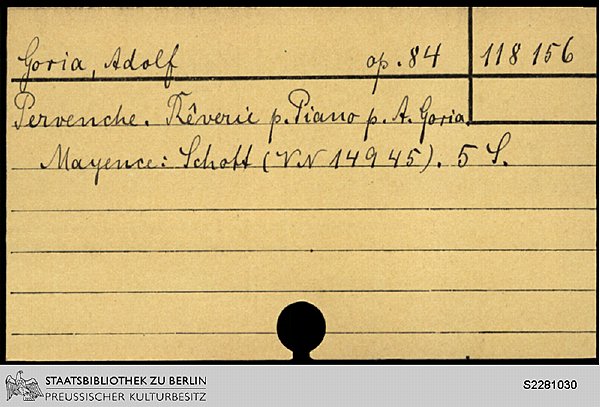 Goria, Adolf op. 84 118 156
Pervenche. Rêverie p. Piano p. A. Goria.
Mayence: Schott (VN 14945). 5 S.
STAATSBIBLIOTHEK ZU BERLIN
PREUSSISCHER KULTURBESITZ
S2281030